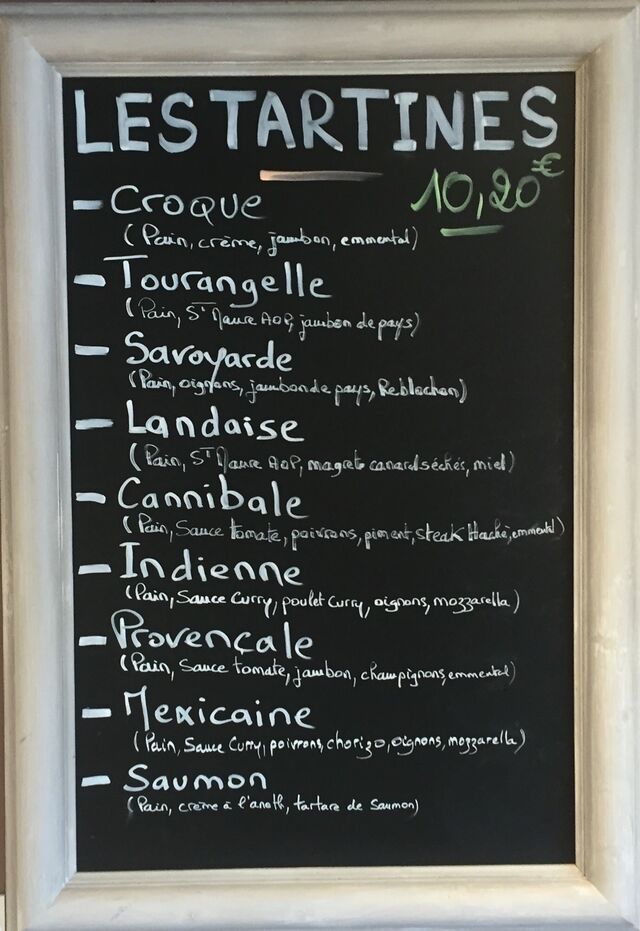 LES TARTINES
10,20€
- Croque
(Pain, crème, jambon, emmental)
- Tourangelle
(Pain, St Maure AOP, jambon de pays)
- Savoyarde
(Pain, oignons, jambon de pays, Reblochon)
- Landaise
(Pain, St Maure AOP, magrets canard séchés, miel)
- Cannibale
(Pain, Sauce tomate, poivrons, piment, steak Haché, emmental)
- Indienne
(Pain, Sauce Curry, poulet Curry, oignons, mozzarella)
- Provençale
(Pain, Sauce tomate, jambon, champignons, emmental)
- Mexicaine
(Pain, Sauce Curry, poivrons, chorizo, oignons, mozzarella)
- Saumon
(Pain, crème à l'aneth, tartare de Saumon)